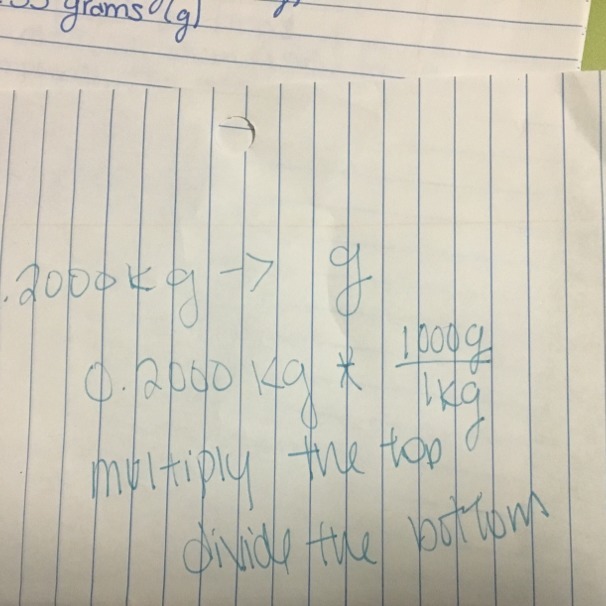 grams (g)
.2000kg -> g
0.2000 kg * 1000g
1kg
multiply the top
divide the bottom